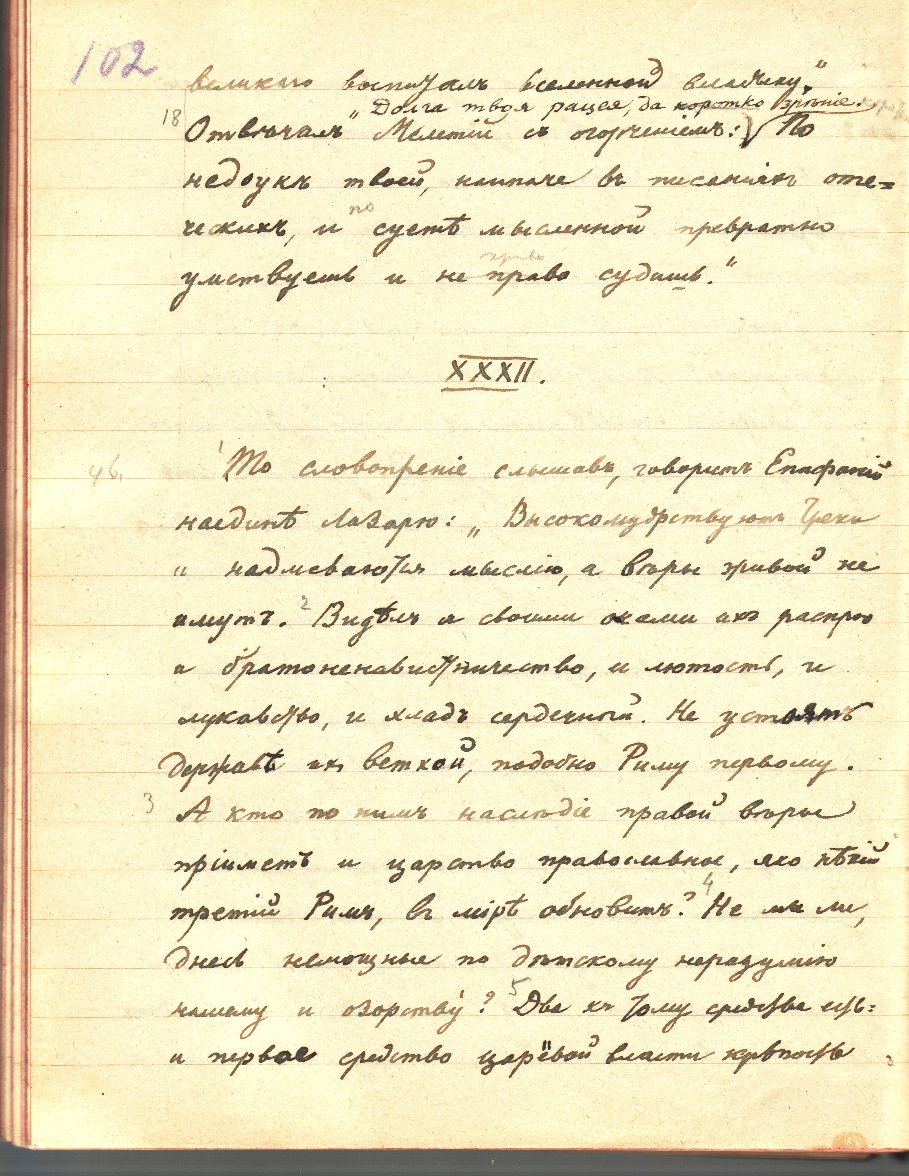 102
великаго воспиталъ вселенной владыку."
„Долга твоя рацея, да коротко зрѣніе.
18 Отвѣчалъ Мелетій съ огорченіемъ: По
недоукѣ твоей, наипаче въ писаніяхъ оте=
по
ческихъ, и суетѣ мысленной превратно
право
умствуешь и не право судишь."
XXXII.
46. 1 То словопреніе слышавъ, говоритъ Епифаній
наединѣ Лазарю: „Высокомудрствуютъ Греки
„ надмеваются мыслію, а вѣры живой не
имутъ. 2 Видѣлъ я своими очами ихъ распрю
и братоненавистничество, и лютость, и
лукавство, и хладъ сердечный. Не устоять
державѣ ихъ ветхой, подобно Риму первому.
3 А кто по нимъ наслѣдіе правой вѣры
пріиметъ и царство православное, яко нѣкій
третій Римъ, въ мірѣ обновитъ? 4 Не мы ли,
днесь немощные по дѣтскому неразумію
нашему и озорству́? 5 Два къ тому средства есть:
и первое средство царёвой власти крѣпость